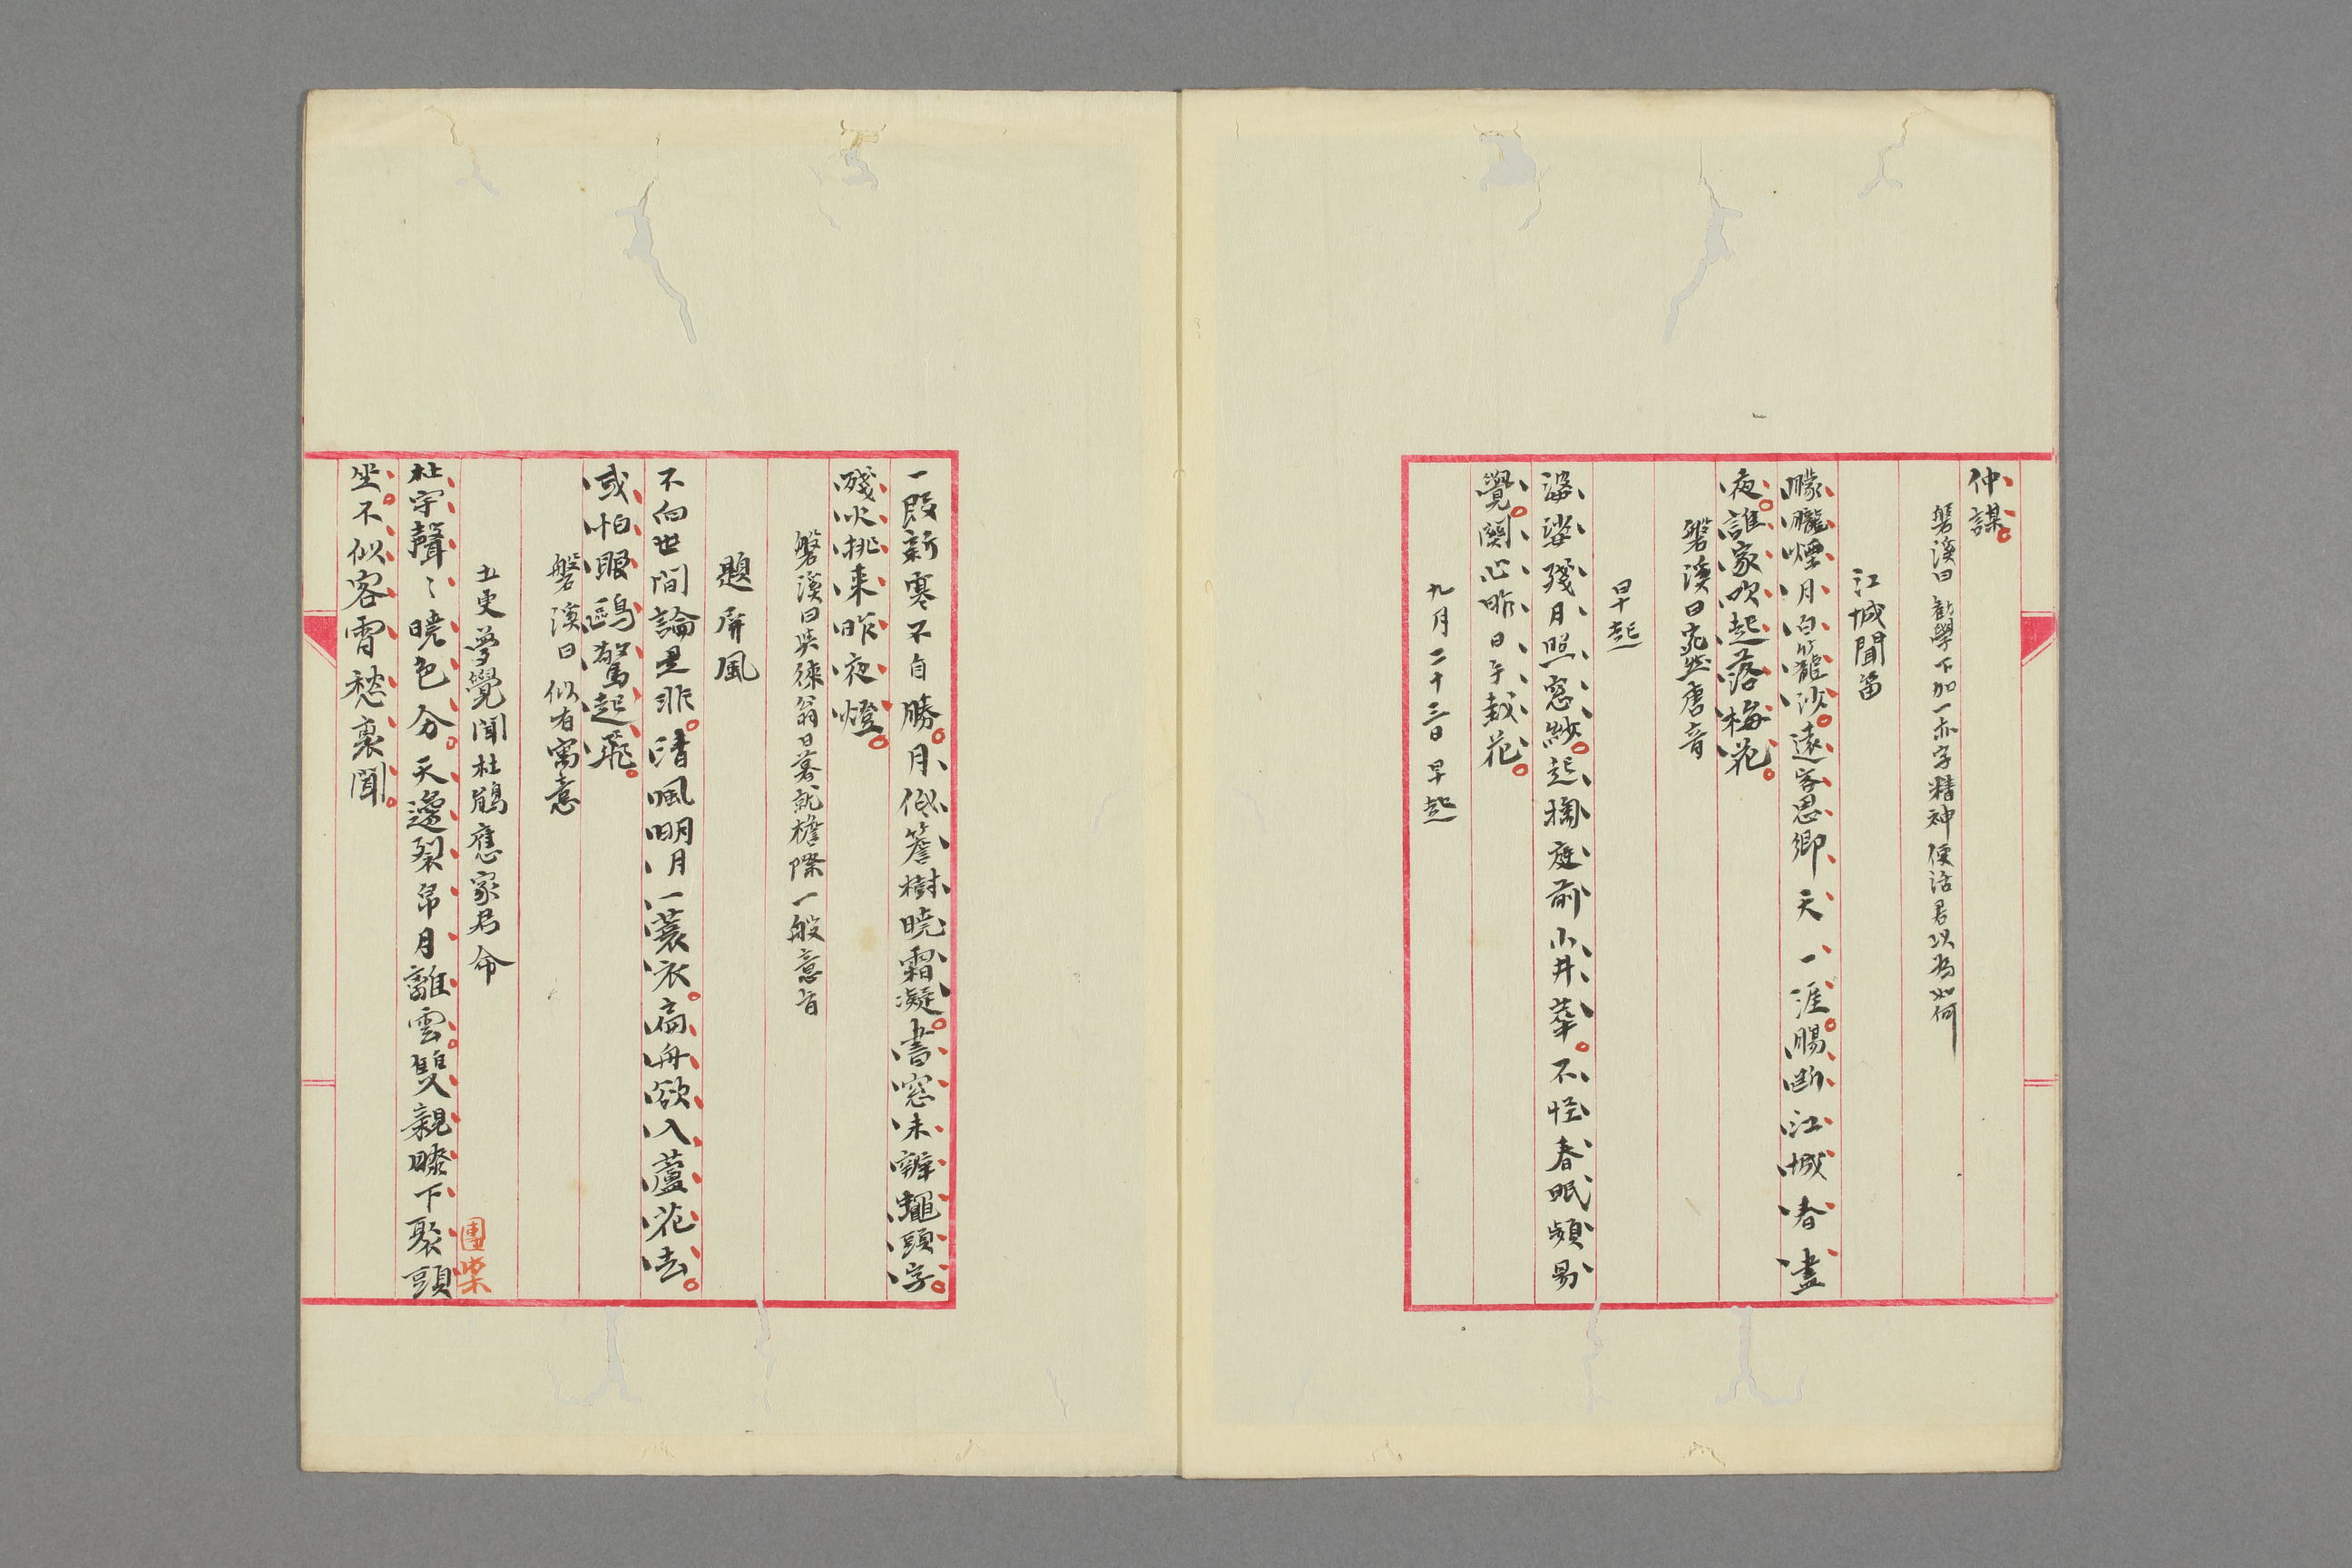 仲謀
磐溪曰勸學下加一亦字精神便活君以為如何
江城聞笛
朦朧煙月白籠沙遠客思鄉天一涯腸斷江城春盡
夜誰家吹起落梅花
磐溪曰宛然唐音
早起
婆娑殘月照窓紗起掬庭前小井華不怪春眠頻易
覺關心昨日手栽花
九月二十三日早起
一段新寒不自勝月低簷樹曉霜凝書窓未辨蠅頭字
殘火挑來昨夜燈
磐溪曰與徠翁日暮就檐際一般意旨
題屏風
不向世間論是非清風明月一蓑衣扁舟欲入蘆花去
或怕眠鷗驚起飛
磐溪曰似有寓意
五更夢覺聞杜鵑應家君命
團欒
杜宇聲〻曉色分天邊裂帛月離雲雙親膝下聚頭
坐不似客宵愁裏聞